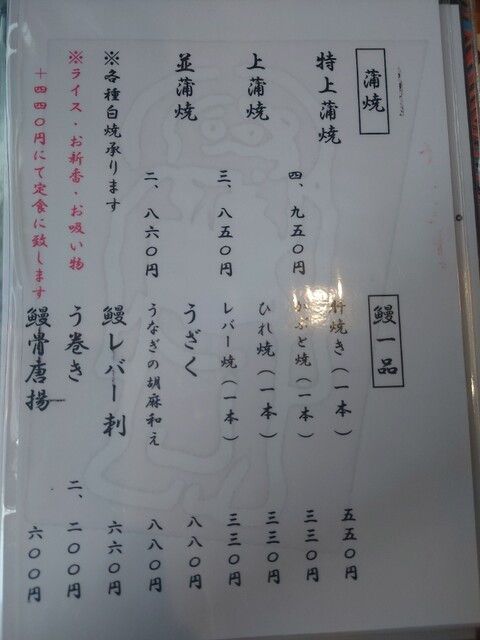 蒲焼
特上蒲焼 四、九五〇円
上蒲焼 三、八五〇円
並蒲焼 二、八六〇円
※各種白焼承ります
※ライス・お新香・お吸い物
＋四四〇円にて定食に致します
鰻一品
焼き（一本） 五五〇円
と焼（一本） 三三〇円
ひれ焼（一本） 三三〇円
レバー焼（一本） 三三〇円
うざく 八八〇円
うなぎの胡麻和え 八八〇円
鰻レバー刺 六六〇円
う巻き 二、二〇〇円
鰻骨唐揚 六〇〇円